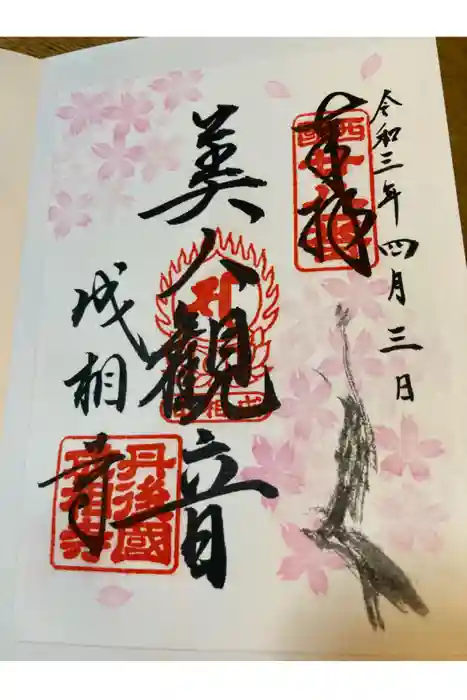 令和三年四月三日
奉拝
西国廿八番
美人観音
成相寺
丹後國
成相寺